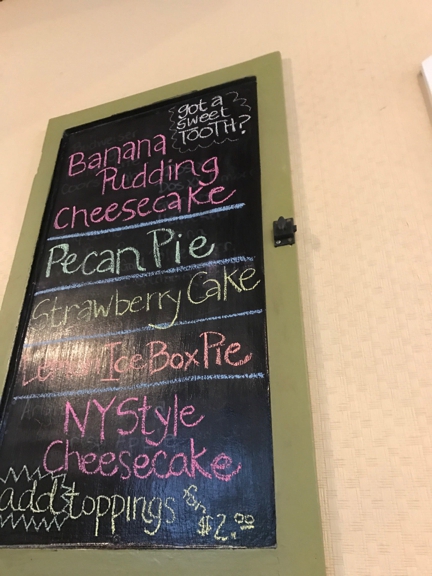 got a
sweet
TOOTH?
Banana
Pudding
Cheesecake
Pecan Pie
Strawberry Cake
Lemon Ice Box Pie
NY Style
Cheesecake
add toppings
$2.00